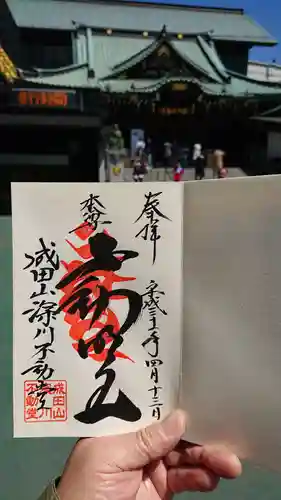 奉拝
平成三十一年四月十三日
本尊
不動明王
成田山深川不動堂
成田山
不動堂